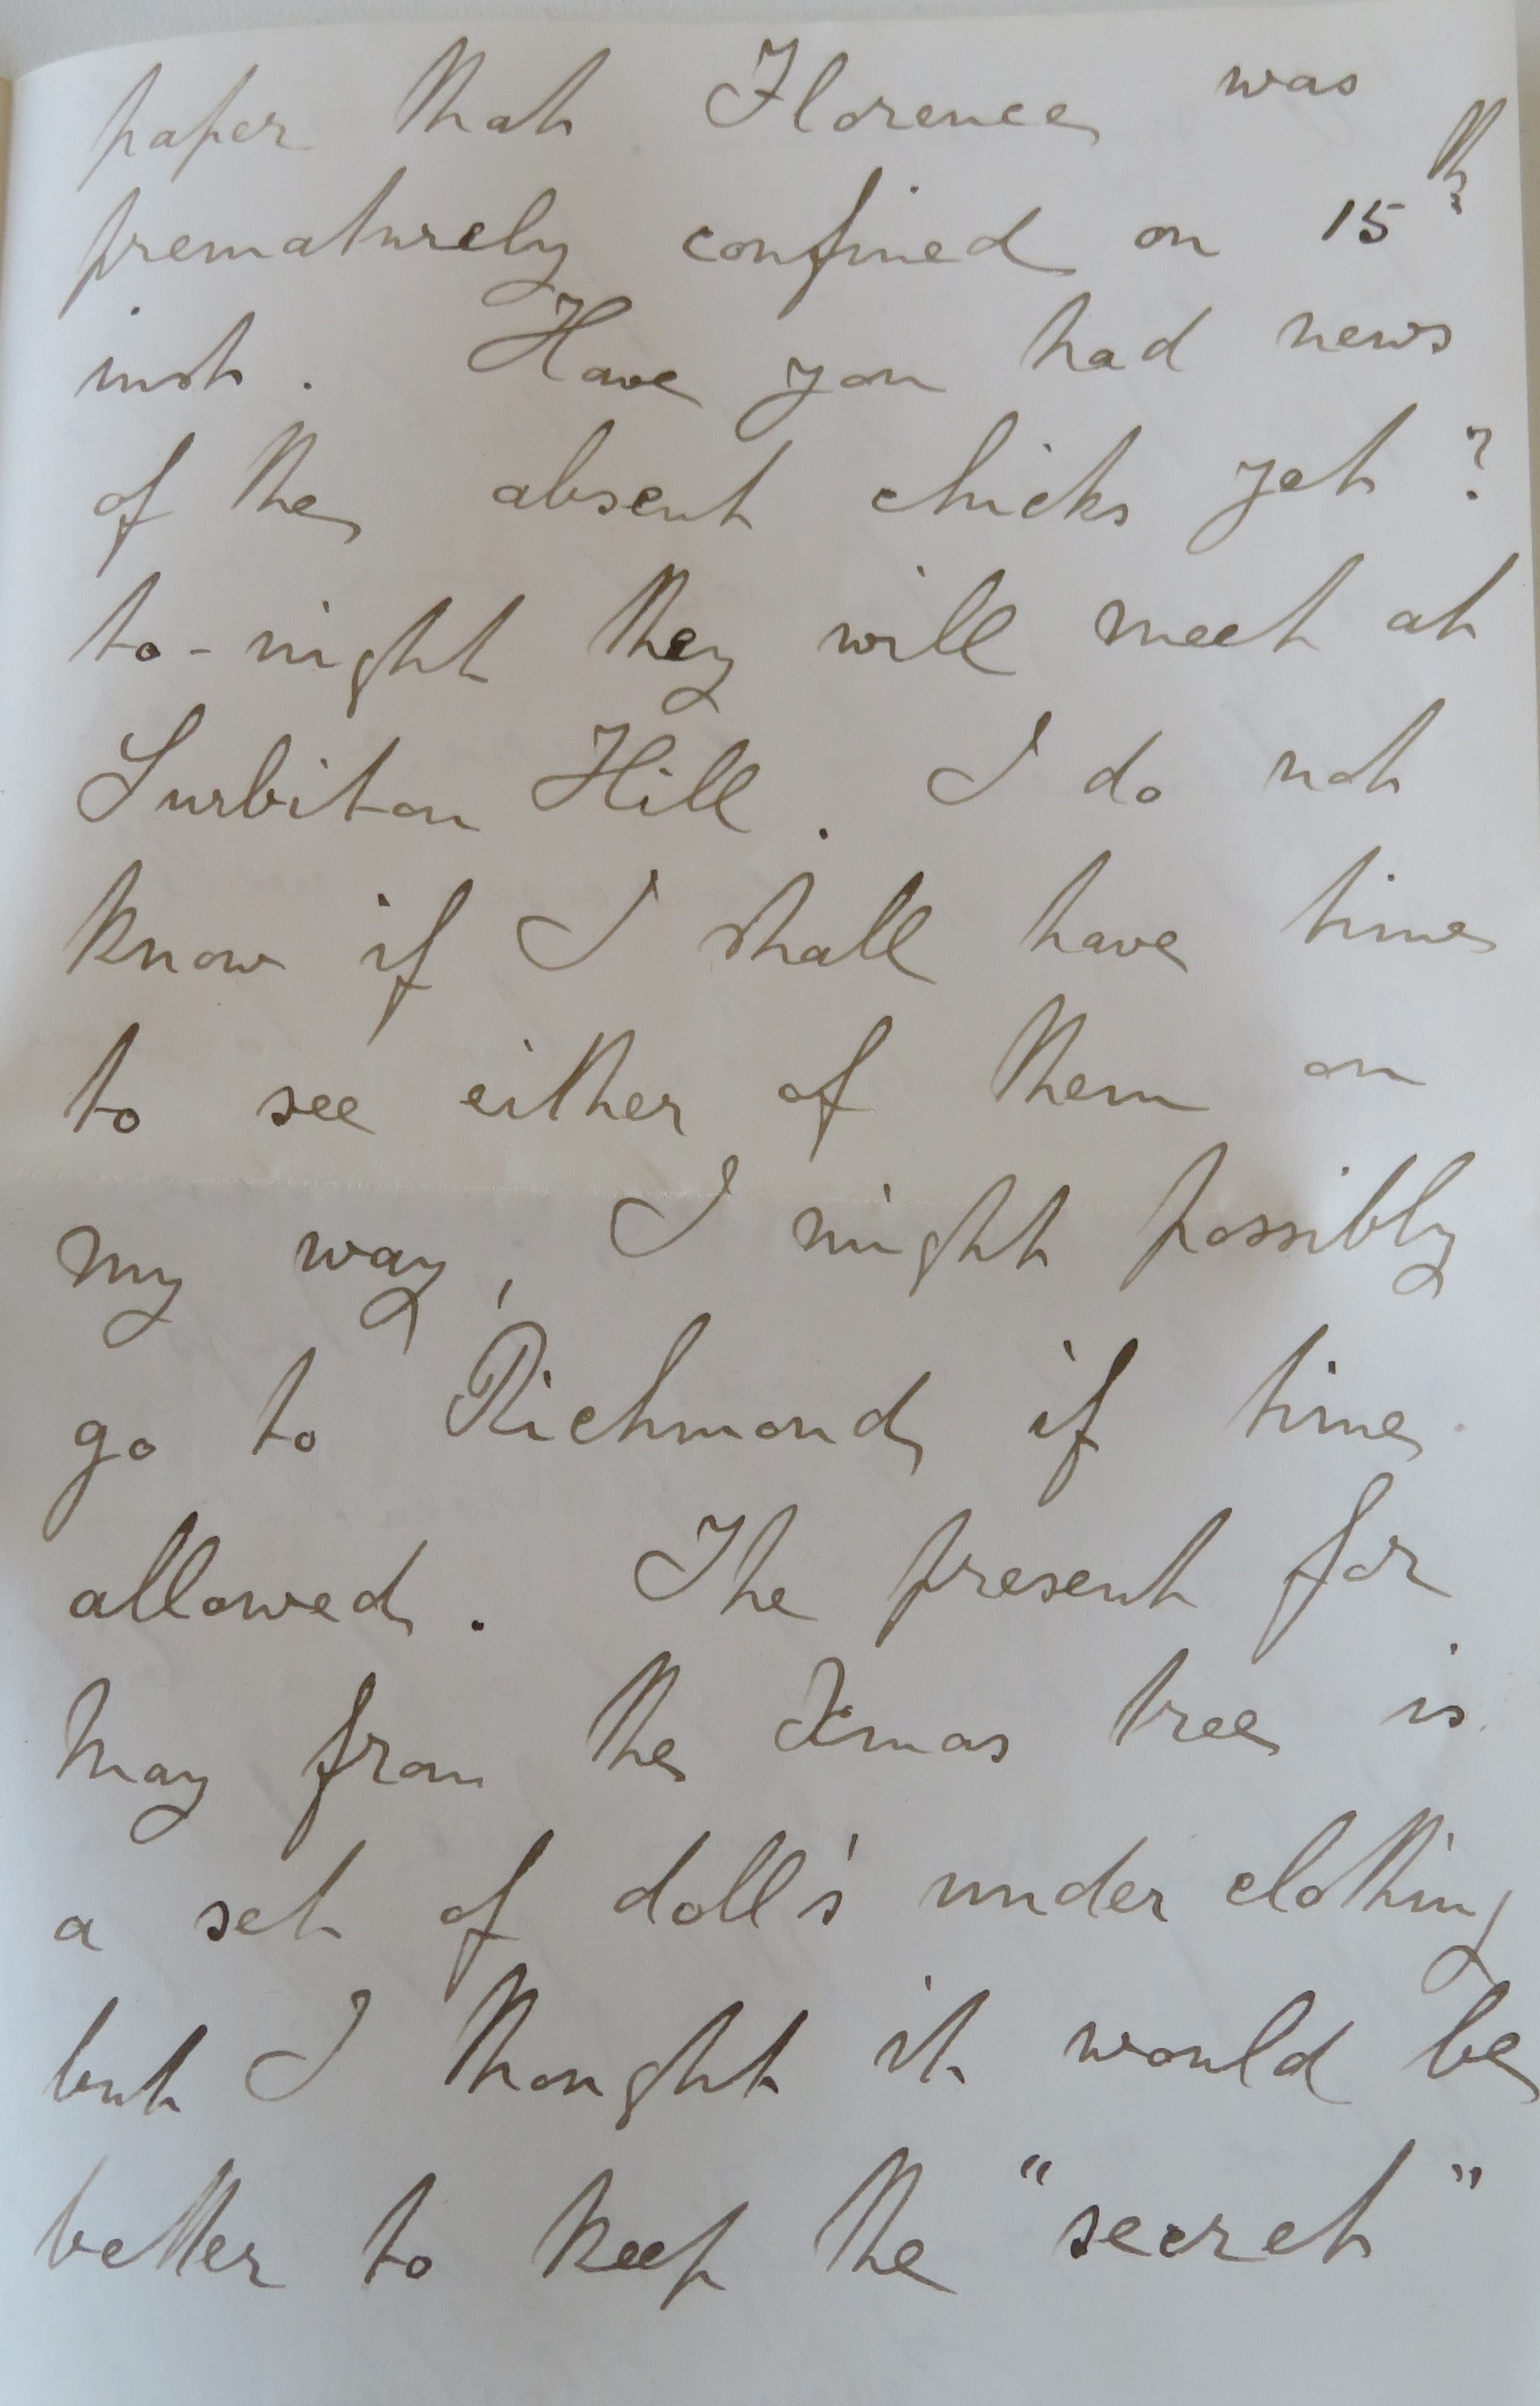 paper that Florence was
prematurely confined on 15th
inst. Have you had news
of the absent chicks yet?
to-night they will meet at
Surbiton Hill. I do not
know if I shall have time
to see either of them on
my way, I might possibly
go to Richmond if time
allowed. The present for
May from the Xmas tree is
a set of doll's under clothing
but I thought it would be
better to keep the "secret"